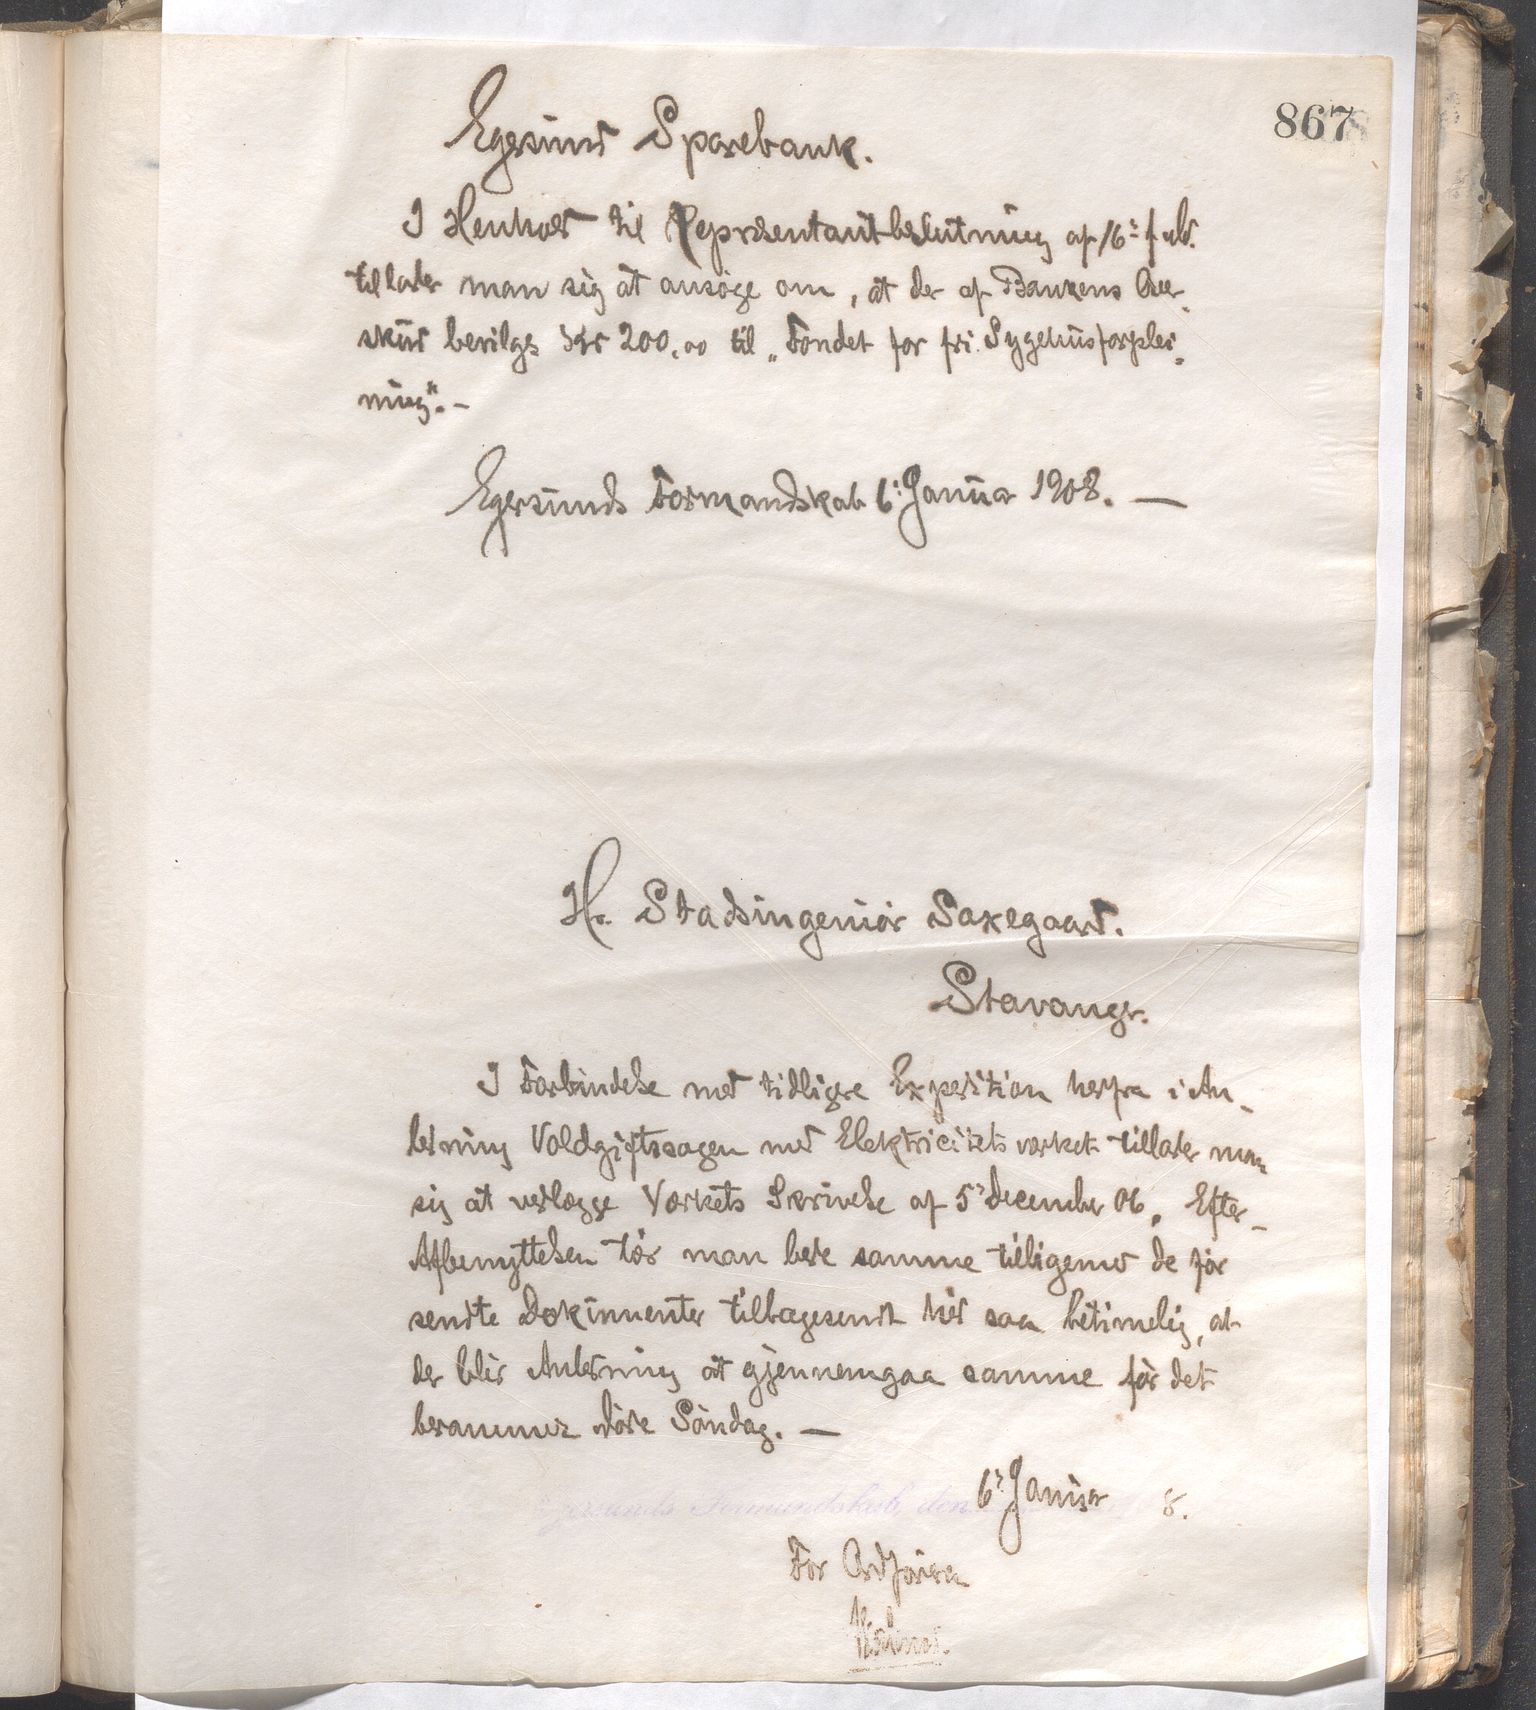 867
Egersund Sparebank.
I Henhold til Repræsentantbeslutning af 16de f. M.
tillader man sig at ansøge om, at der af Bankens Over-
skud bevilges Kr 200.00 til „Fondet for fri Sygehusforplei-
ning“. -
Egersunds Formandskab 6: Januar 1908. —
Hr. Stadsingeniør Saxegaard.
Stavanger.
I Forbindelse med tidligere Expedition herfra i An-
ledning Voldgiftssagen med Elektricitetsværket tillader man
sig at vedlægge Værkets Skrivelse af 5' december 06. Efter
Afbenyttelsen tør man bede samme tilligemed de før
sendte Dokumenter tilbagesendt hid saa betimelig, at
der blir Anledning at gjennemgaa samme før det
berammede Møde Søndag. —
Egersunds Formandskab den 6' Januar 8.
For Ordføreren